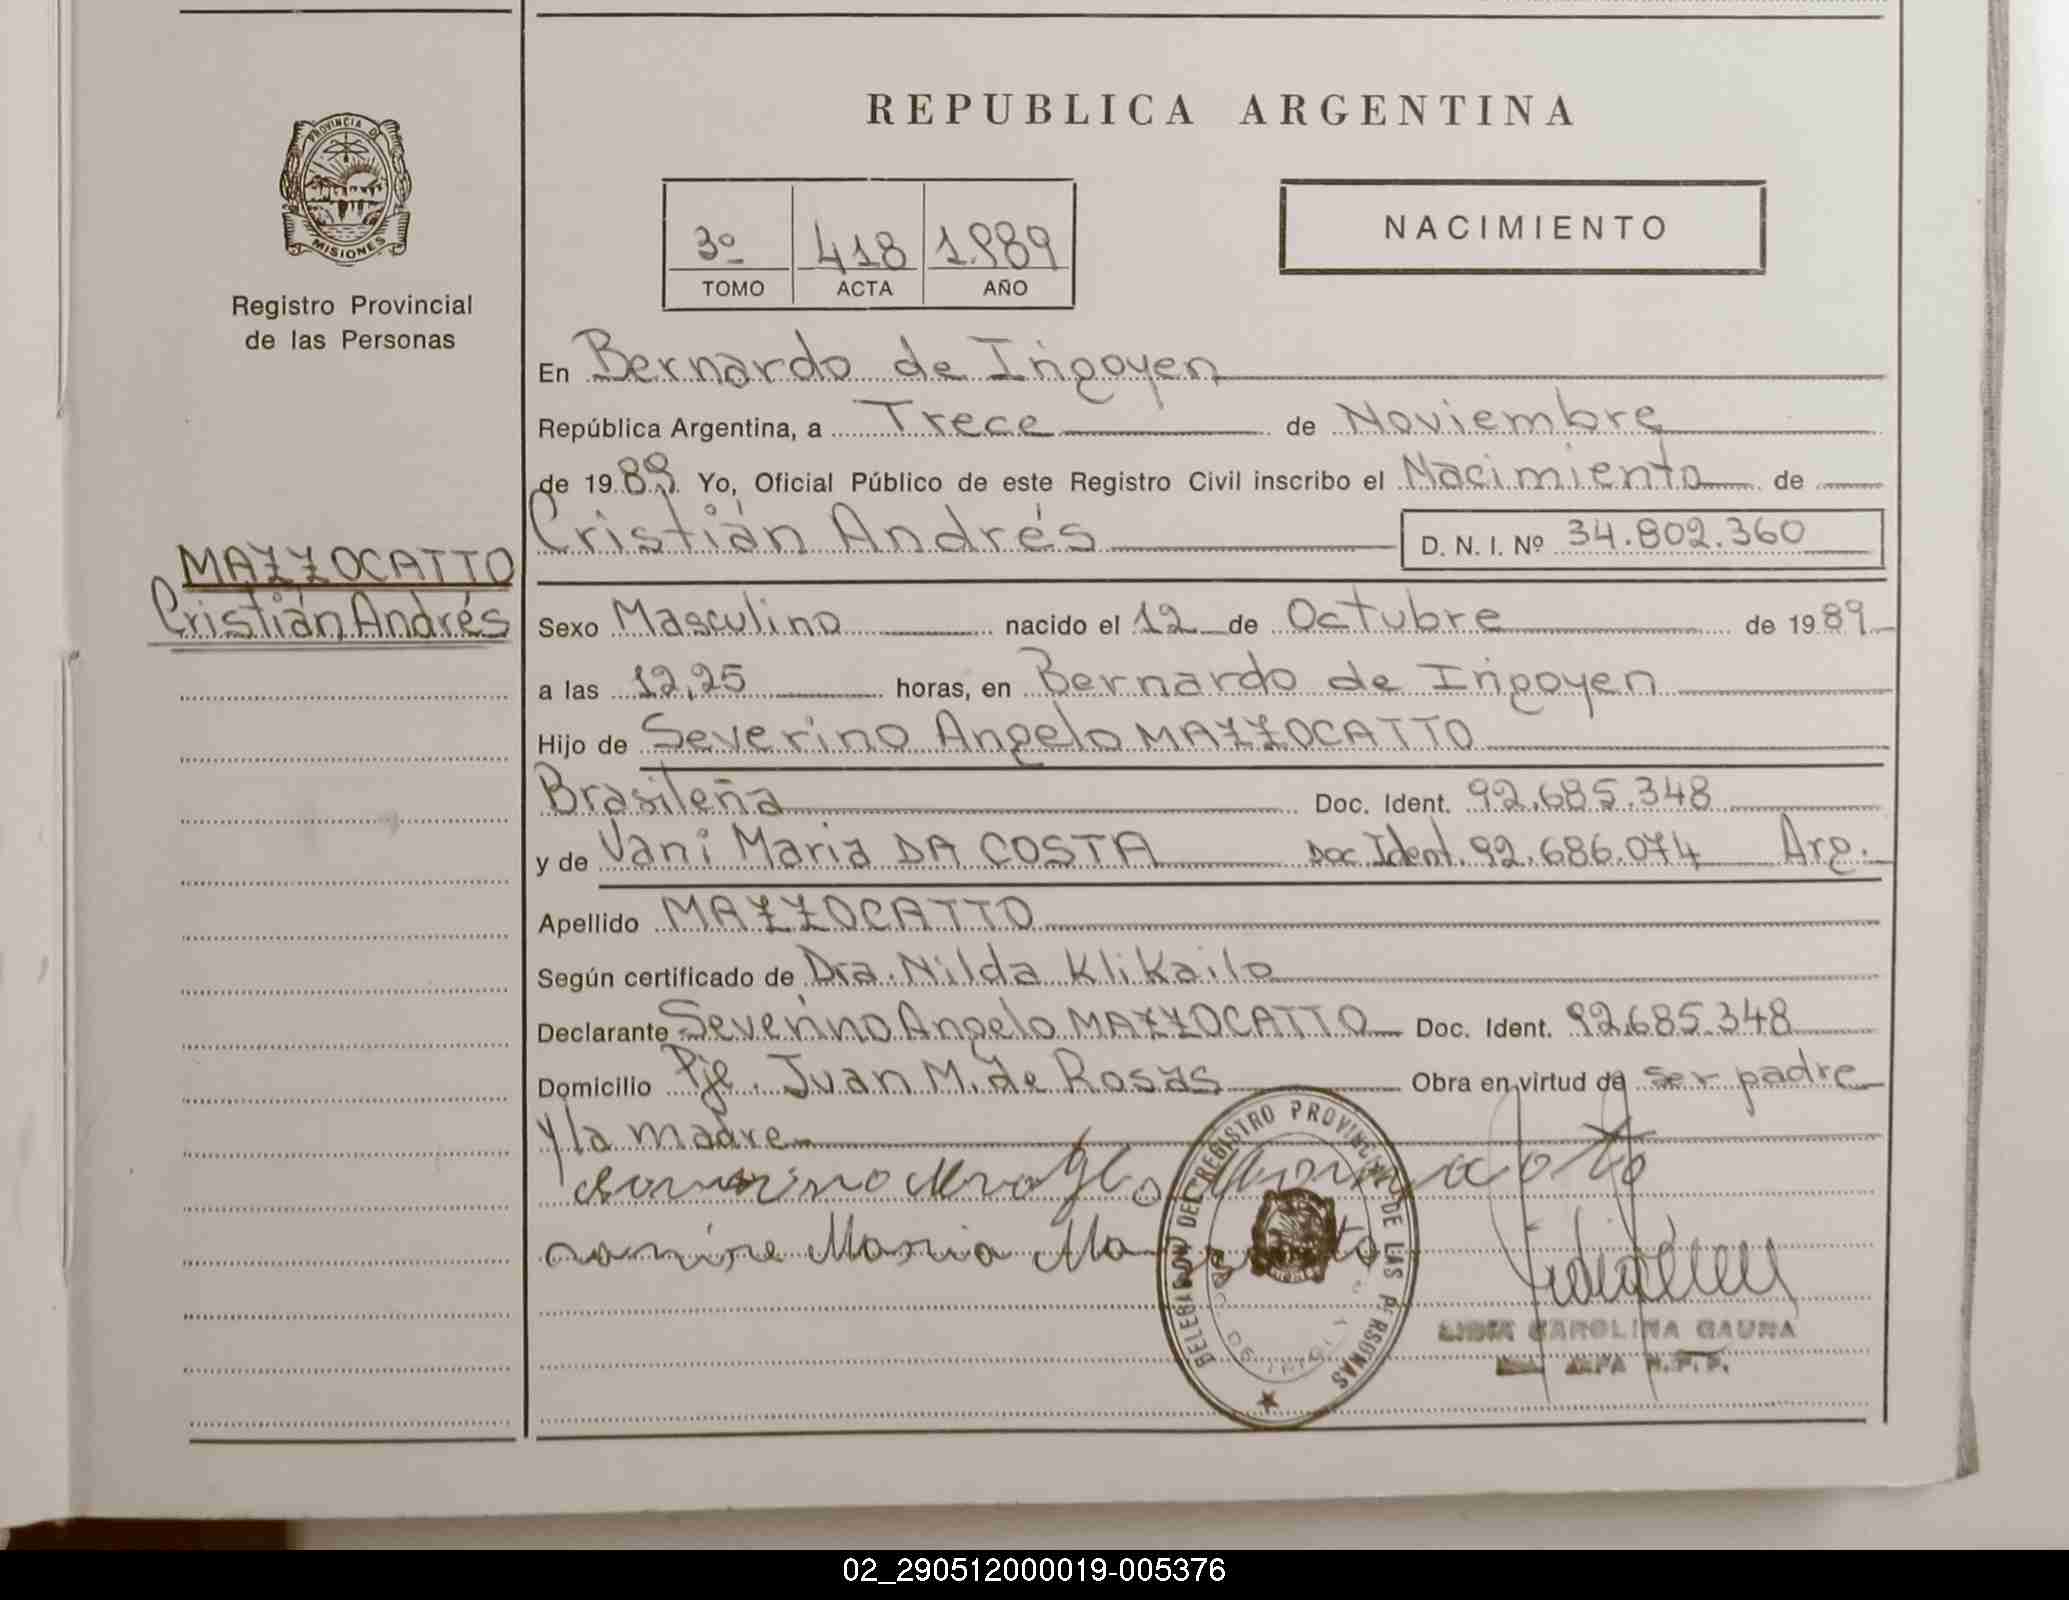 REPUBLICA ARGENTINA
PROVINCIA DE
MISIONES
Registro Provincial
de las Personas
3º 418 1.989
TOMO ACTA AÑO
NACIMIENTO
En Bernardo de Irigoyen
República Argentina, a Trece de Noviembre
de 1989. Yo, Oficial Público de este Registro Civil inscribo el Nacimiento de
Cristián Andrés D. N. I. Nº 34.802.360
MAZZOCATTO
Cristián Andrés
Sexo Masculino nacido el 12 de Octubre de 1989
a las 12,25 horas, en Bernardo de Irigoyen
Hijo de Severino Angelo MAZZOCATTO
Brasileña Doc. Ident. 92.685.348
y de Vani Maria DA COSTA Doc Ident. 92.686.074 Arg.
Apellido MAZZOCATTO
Según certificado de Dra. Nilda Klikailo
Declarante Severino Angelo MAZZOCATTO Doc. Ident. 92.685.348
Domicilio Pje. Juan M. de Rosas Obra en virtud de ser padre
y la madre
DELEGACION DEL REGISTRO PROVINCIAL DE LAS PERSONAS
Maria
CAROLINA GAUNA
02_290512000019-005376